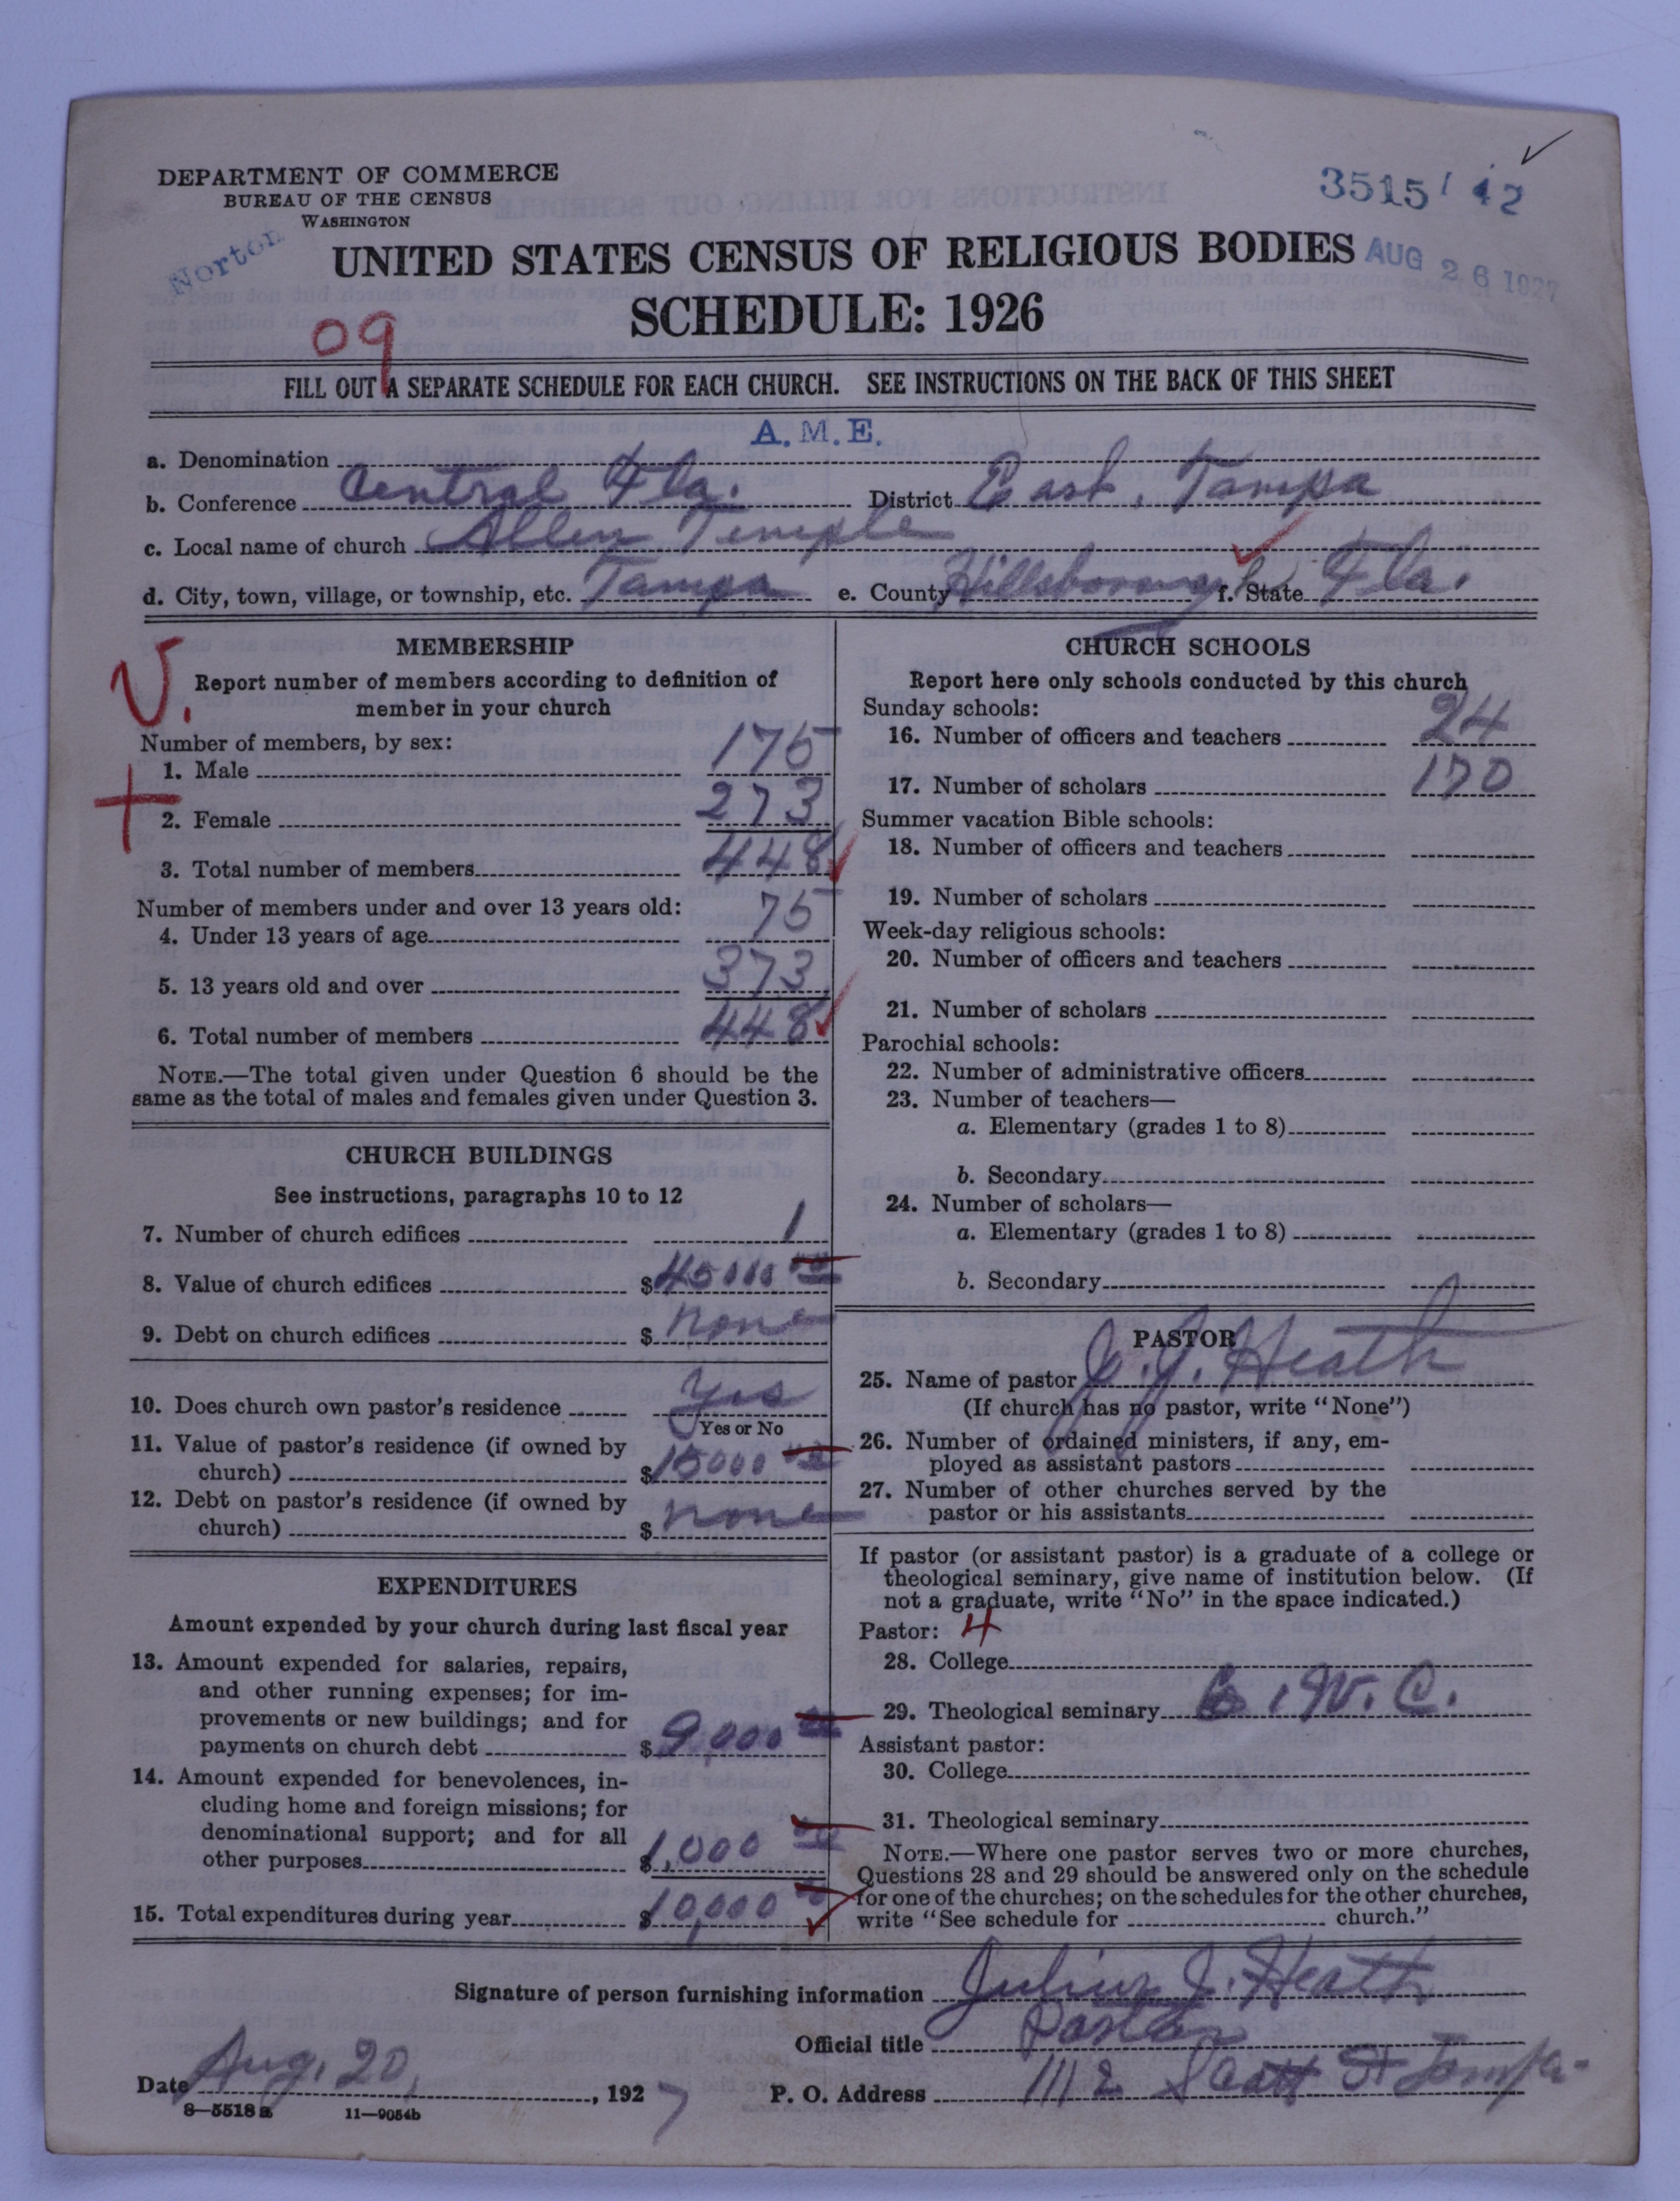 DEPARTMENT OF COMMERCE
BUREAU OF THE CENSUS
WASHINGTON
3515 / 42
Norton
UNITED STATES CENSUS OF RELIGIOUS BODIES
AUG 26 1927
SCHEDULE: 1926
09
FILL OUT A SEPARATE SCHEDULE FOR EACH CHURCH. SEE INSTRUCTIONS ON THE BACK OF THIS SHEET
a. Denomination A. M. E.
b. Conference Central Fla. District East, Tampa
c. Local name of church Allen Temple
d. City, town, village, or township, etc. Tampa e. County Hillsborough f. State Fla.
MEMBERSHIP
Report number of members according to definition of
member in your church
Number of members, by sex:
1. Male 175
2. Female 273
3. Total number of members 448
Number of members under and over 13 years old:
4. Under 13 years of age 75
5. 13 years old and over 373
6. Total number of members 448
NOTE.—The total given under Question 6 should be the
same as the total of males and females given under Question 3.
CHURCH BUILDINGS
See instructions, paragraphs 10 to 12
7. Number of church edifices 1
8. Value of church edifices $45000 00
9. Debt on church edifices $ none
10. Does church own pastor's residence yes
Yes or No
11. Value of pastor's residence (if owned by
church) $15000 00
12. Debt on pastor's residence (if owned by
church) $ none
EXPENDITURES
Amount expended by your church during last fiscal year
13. Amount expended for salaries, repairs,
and other running expenses; for im-
provements or new buildings; and for
payments on church debt $9,000 00
14. Amount expended for benevolences, in-
cluding home and foreign missions; for
denominational support; and for all
other purposes $1,000 00
15. Total expenditures during year $10,000 00
CHURCH SCHOOLS
Report here only schools conducted by this church
Sunday schools:
16. Number of officers and teachers 24
17. Number of scholars 170
Summer vacation Bible schools:
18. Number of officers and teachers
19. Number of scholars
Week-day religious schools:
20. Number of officers and teachers
21. Number of scholars
Parochial schools:
22. Number of administrative officers
23. Number of teachers—
a. Elementary (grades 1 to 8)
b. Secondary
24. Number of scholars—
a. Elementary (grades 1 to 8)
b. Secondary
PASTOR
25. Name of pastor J. J. Heath
(If church has no pastor, write "None")
26. Number of ordained ministers, if any, em-
ployed as assistant pastors
27. Number of other churches served by the
pastor or his assistants
If pastor (or assistant pastor) is a graduate of a college or
theological seminary, give name of institution below. (If
not a graduate, write "No" in the space indicated.)
Pastor: 4
28. College
29. Theological seminary W. C.
Assistant pastor:
30. College
31. Theological seminary
NOTE.—Where one pastor serves two or more churches,
Questions 28 and 29 should be answered only on the schedule
for one of the churches; on the schedules for the other churches,
write "See schedule for church."
Signature of person furnishing information Julius J. Heath
Official title Pastor
Date Aug. 20, 1927 P. O. Address 1112 Scott St Tampa
8—5518a 11—9054b